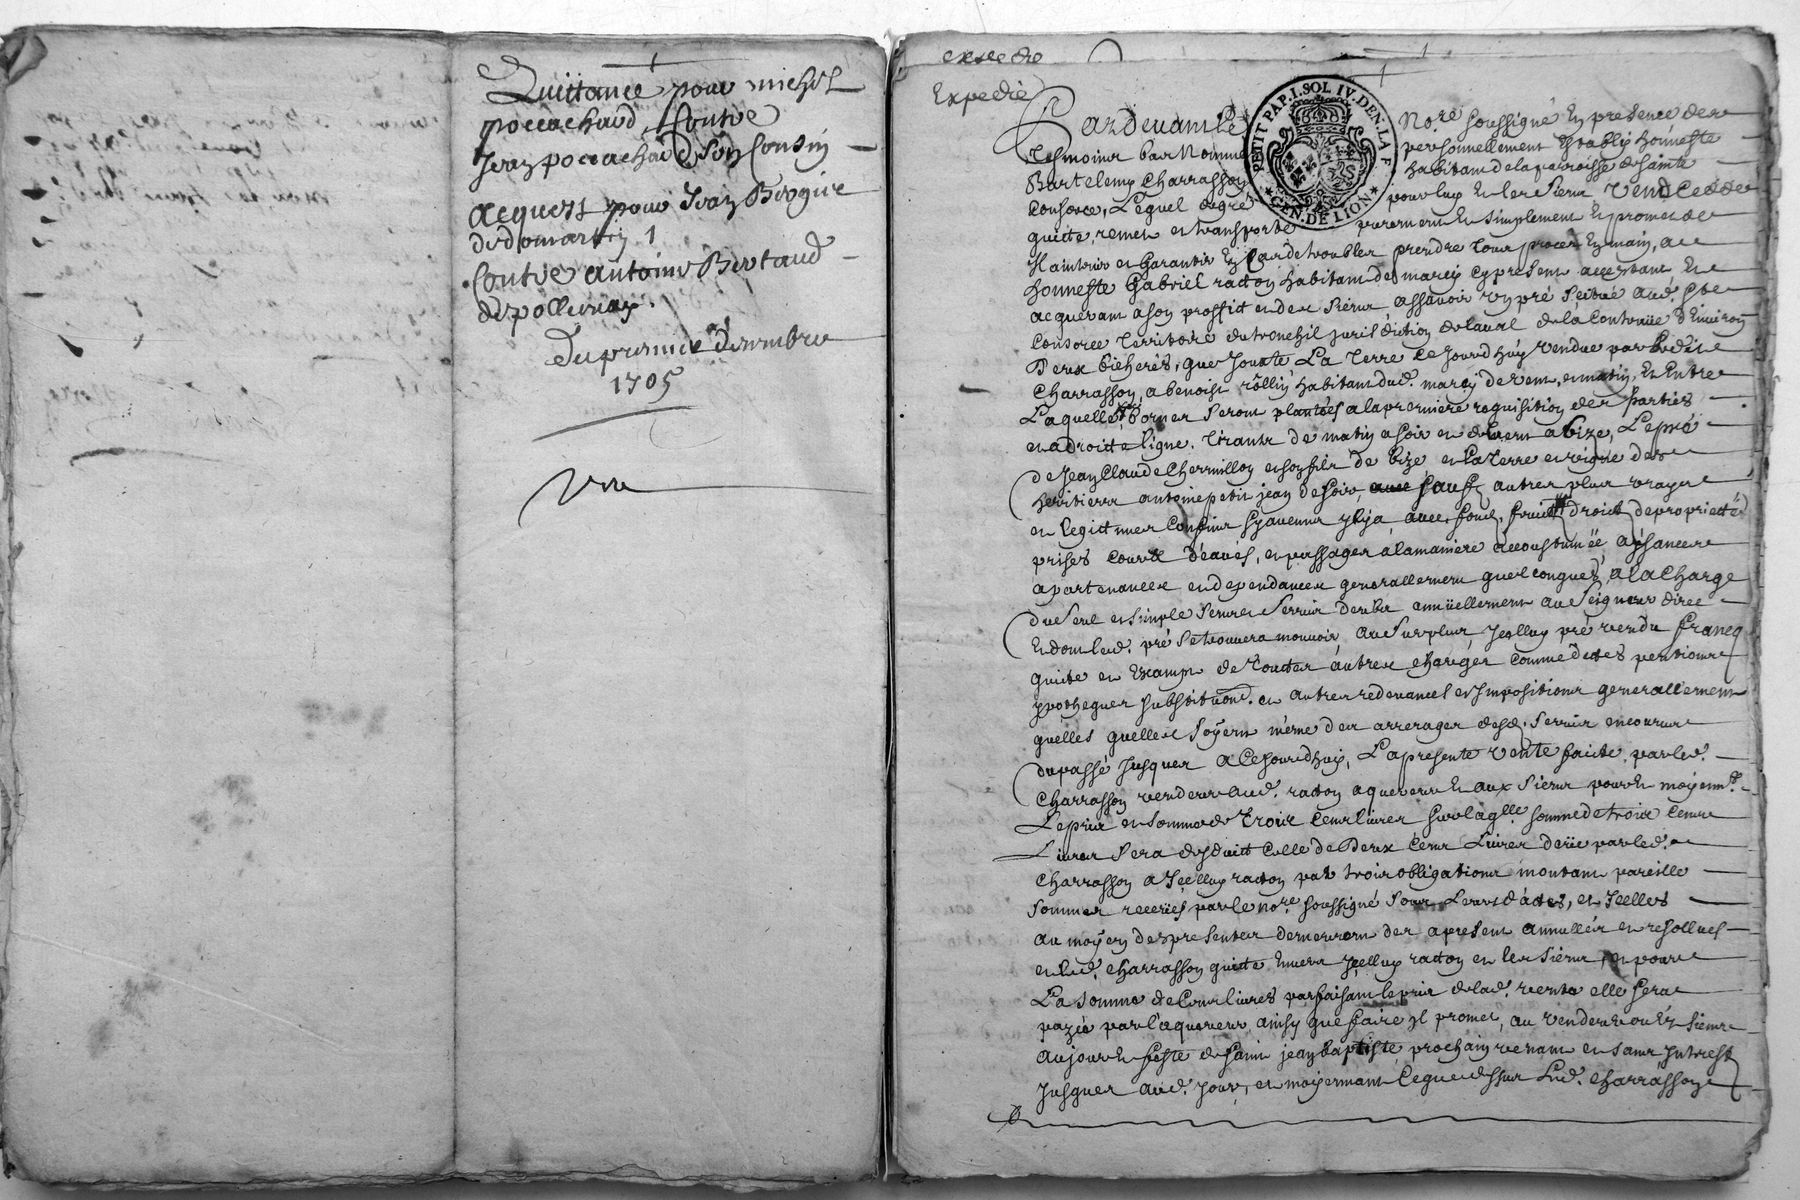 Quittance pour michel
pocachard Contre
Jean pocachard son Cousin
acquest pour Jean Bergier
de domartin 1
Contre antoine Bertaud
de pollienay.
du premier decembre
1705
expedie
Expedié
PETIT PAP. I. SOL IV. DEN. LA F. GEN. DE LION
Pardevant Le No.re soussigné En presence des
Tesmoins bas Nommé personnellement Estably honneste
Bartelemy Charrasson habitant de la parroisse de sainte
Consorce, Lequel de gré pour luy et les siens Vend Cedde
quitte, remet et transporte purement et simplement et promet de
Maintenir et Garantir En Cas de troubles prendre tour procés En main, a
honneste Gabriel ratton habitant de marcy cy present acceptant Et
acquerant a son proffit et des siens assavoir un pré scitué aud. Ste
Consorce Territoire du tronchil jurisdiction de laval de la Contenue d'Environ
Deux bicherés, que Jouxte La Terre Ce Jourd'huy vendue par led.
Charrasson, a benoist rollin habitant dud. marcy de vent, et matin, Et Entre
Laquelle Bornes seront plantées a la premiere requisition des parties
en droitte ligne. tirants de matin a soir et de vent a bize, Le pré
de Jean Claude Chermillon et son fils de bize et la terre et vigne des
heritiers antoine petit jean de soir, sauf autres plus vrays
et legittimes Confins sy aucuns il y a, avec, fond, fruits droicts de propriettés
prises cours d'eaües, et passages a la maniere accoustumée, aysances
apartenances et dependances generallement quelconques, a la Charge
du seul et simple servis deubt annüellement au seigneur direc
Et dont led. pré se trouvera mouvoir, au surplus Jcelluy pré vendu francq
quitte et Exampt de touttes autres charges comme dettes pentions
ypotheques substitution. et autres redevances et Impositions generallement
quelles quelles soyent même des arrerages desd. servis encourus
du passé Jusques a Cejourdhuy, La presente vente faite, par led.
Charrasson vendeur aud. ratton aquereur et aux siens pour et moyenn.t
Le prix et somme de trois Cent livres sur laq.lle somme de trois Cent
Livres sera desduitt Celle de Deux Cent Livres deüe par led.
Charrasson a Jcelluy ratton par trois obligations montant pareille
somme receües par le no.re soussigné sous Leurs dattes, et Jcelles
au moyen des presentes demeurront des apresent annullées et resollues
et led. Charrasson quitte Envers Jcelluy ratton et les siens, et pour
La somme de Cent livres parfaisant le prix de lad. vente elle sera
payée par l'aquereur ainsy que faire il promet, au vendeur ou Es siens
au jour et feste de saint jean baptiste prochain venant et sans Interest
Jusques aud. Jour, et moyennant Ce que dessus Led. Charrasson